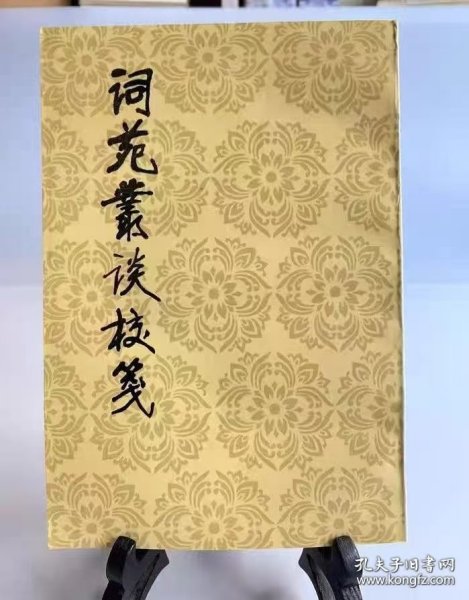 词苑叢谈校箋
孔夫子旧书网
www.kongfz.com